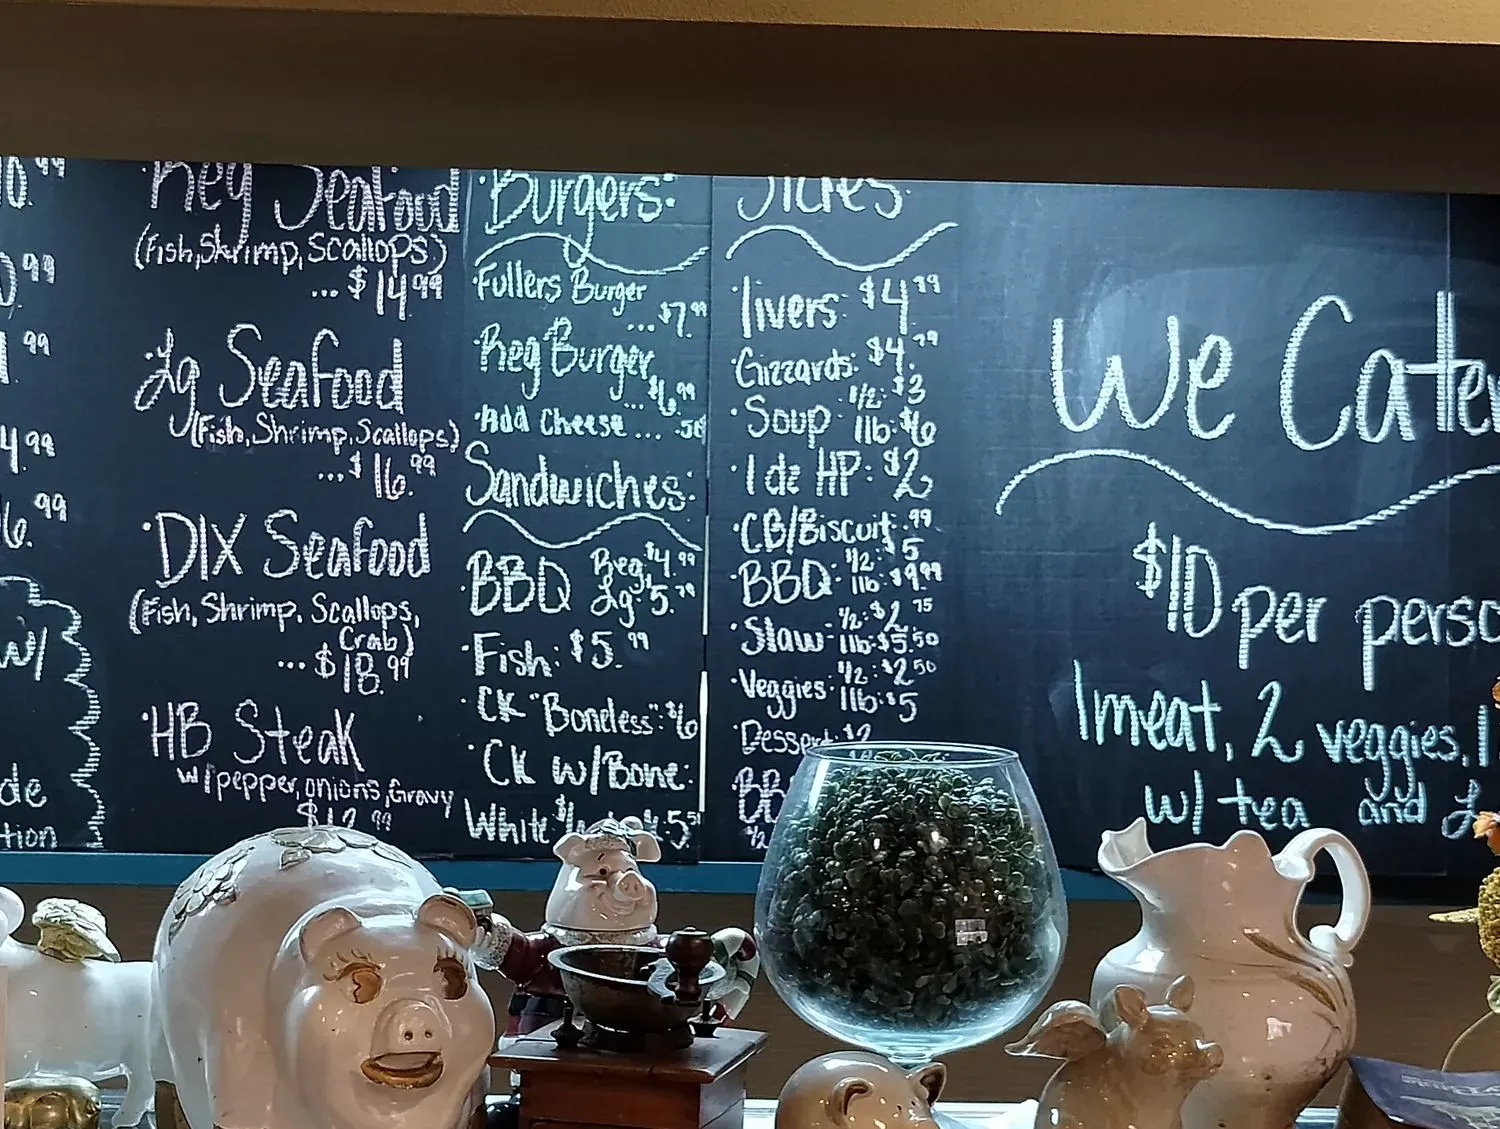 0.99
.99
.99
4.99
6.99
w/
de
tion
Reg Seafood
(Fish, Shrimp, Scallops)
... $14.99
Lg Seafood
(Fish, Shrimp, Scallops)
... $16.99
DIX Seafood
(Fish, Shrimp, Scallops,
Crab)
... $18.99
HB Steak
w/pepper, onions, Gravy
Burgers:
Fullers Burger
... $7.99
Reg Burger
... $6.99
Add Cheese ... .50
Sandwiches:
BBQ Reg $4.99
Lg. 5.79
Fish: $5.99
CK "Boneless": $6
CK w/Bone:
White
Sides
livers: $4.99
Gizzards: $4.79
Soup 1/2: $3
1lb: $6
1 dz HP: $2
CB/Biscuit .99
BBQ: 1/2: $5
1lb: $9.99
Slaw 1/2: $2.75
1lb: $5.50
Veggies: 1/2: $2.50
1lb: $5
Dessert $2
We Cater
$10 per perso
1 meat, 2 veggies, 1
w/ tea and